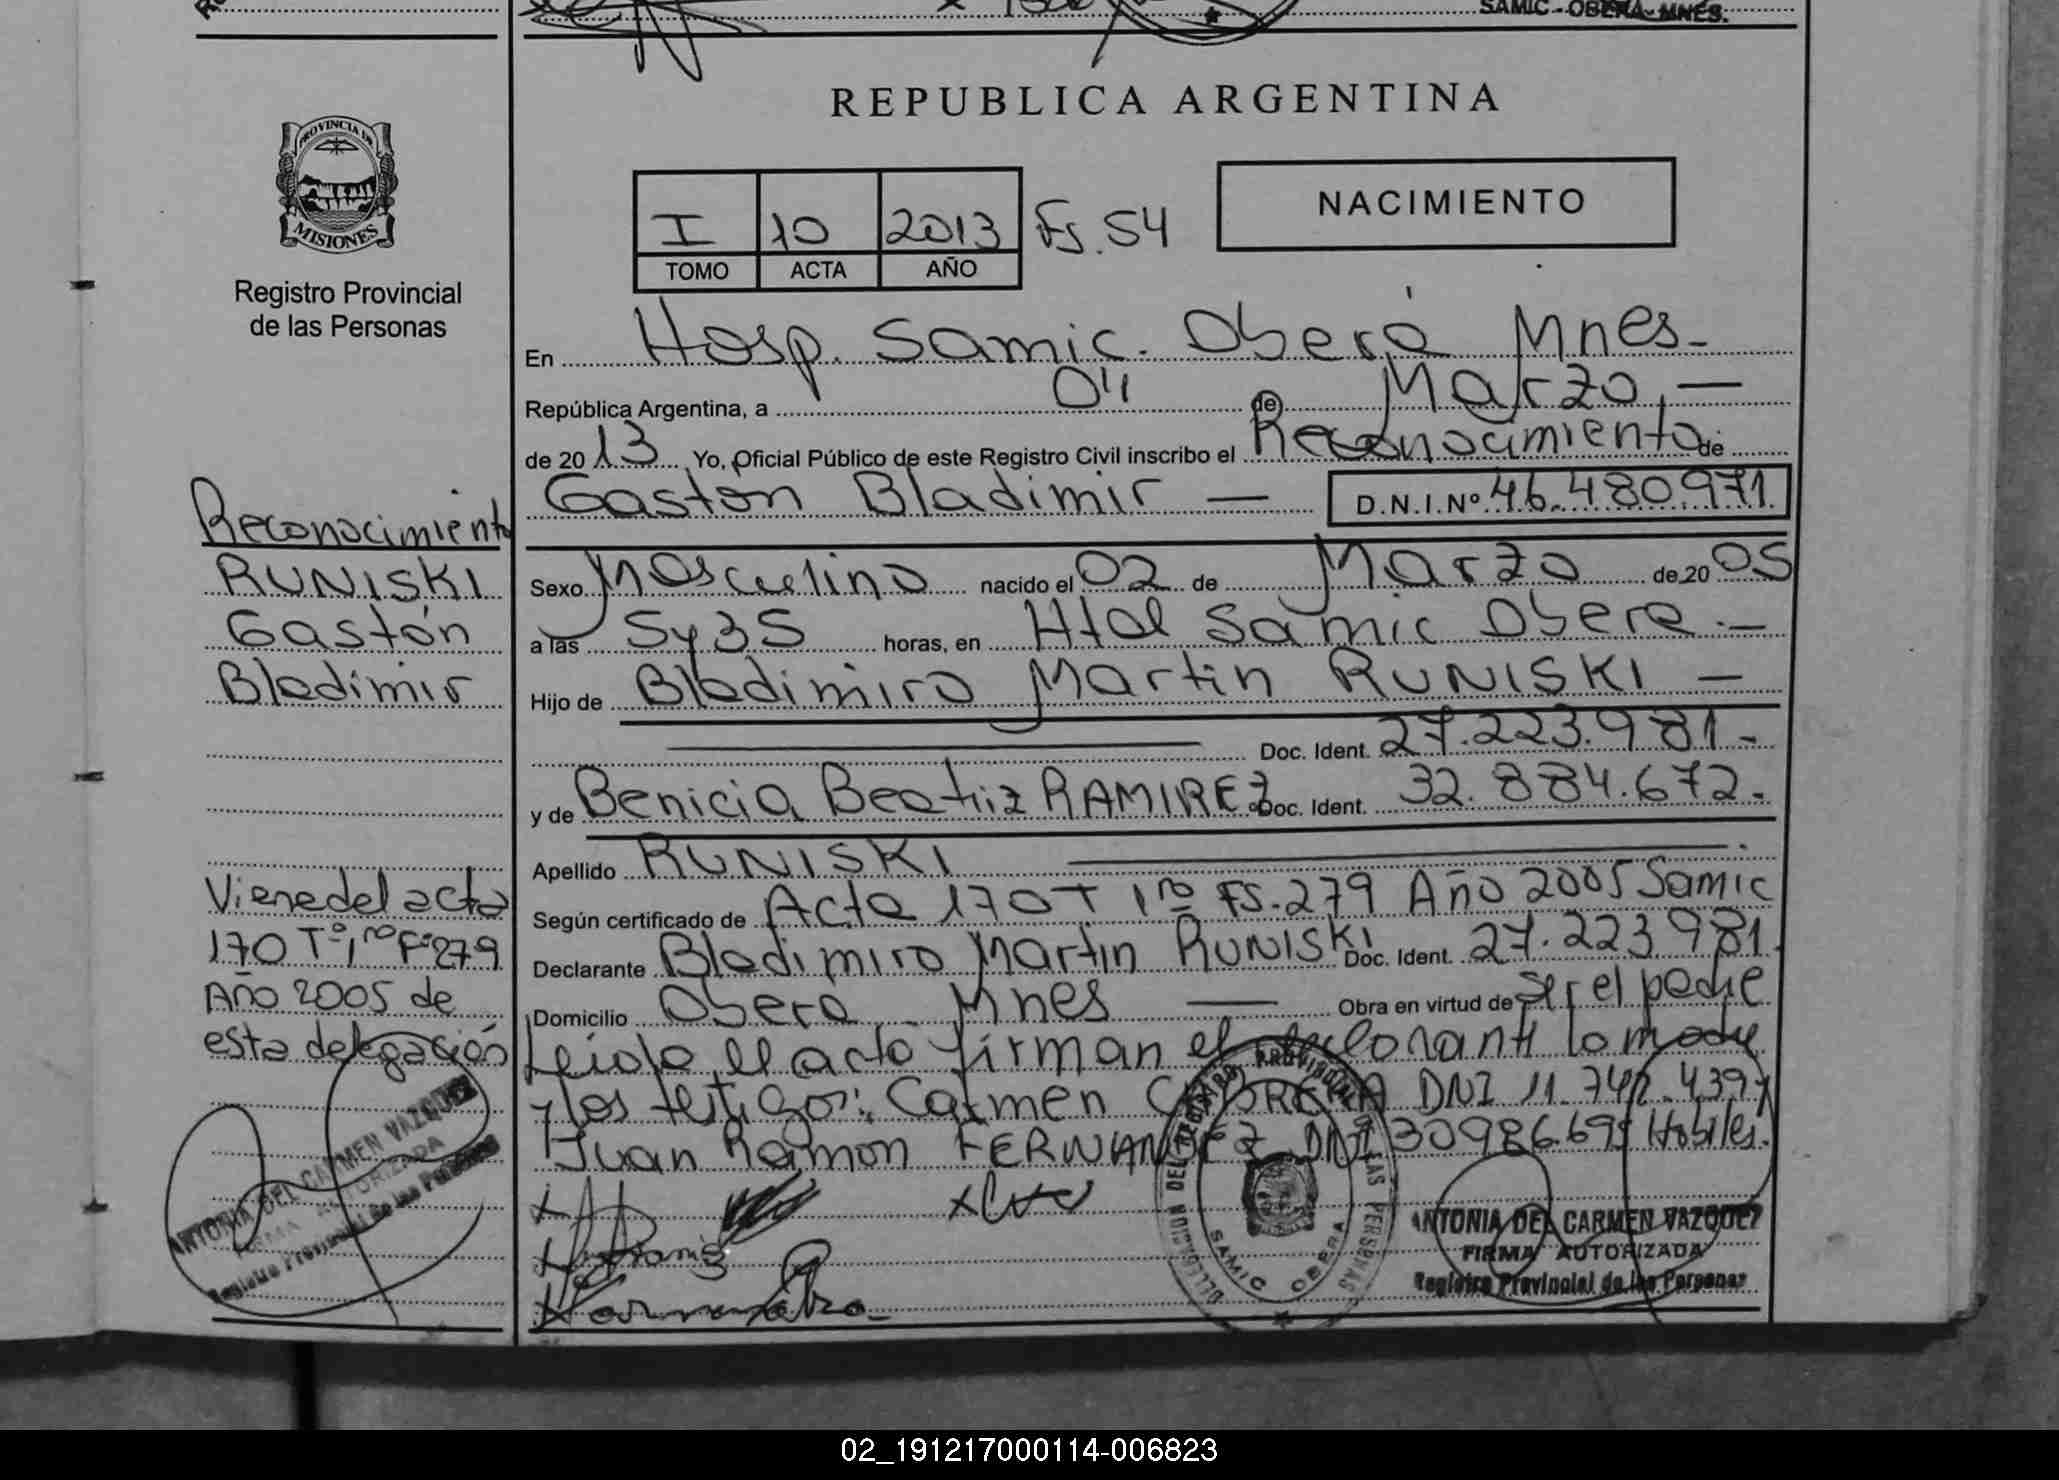 SAMIC - OBERA - MNES.
REPUBLICA ARGENTINA
PROVINCIA DE
MISIONES
Registro Provincial
de las Personas
I 10 2013 Fs. 54
TOMO ACTA AÑO
NACIMIENTO
En Hosp. Samic. Oberá Mnes-
República Argentina, a 04 de Marzo, —
de 20 13 Yo, Oficial Público de este Registro Civil inscribo el Reconocimiento de
Gastón Bladimir — D.N.I.Nº 46.480.971.
Sexo Masculino nacido el 02 de Marzo de 20 05
a las 5y35 horas, en Htal Samic Obera.—
Hijo de Bladimiro Martin RUNISKI —
Doc. Ident. 27.223.981-
y de Benicia Beatriz RAMIREZ. Doc. Ident. 32.884.672.
Apellido RUNISKI
Según certificado de Acta 170 T 1ro FS.279 Año 2005 Samic
Declarante Bladimiro Martin RUNISKI Doc. Ident. 27.223.981.
Domicilio Obera Mnes — Obra en virtud de ser el padre
Leida el acta firman el declarante la madre
y los testigos: Carmen DNI 11.742.439 y
Juan Ramon FERNANDEZ DNI 30986.695 Habiles.
Reconocimiento
RUNISKI
Gastón
Bladimir
Viene del acta
170 Tº 1ro Fº 279
Año 2005 de
esta delegación
ANTONIA DEL CARMEN VAZQUEZ
FIRMA AUTORIZADA
Registro Provincial de las Personas
DELEGACION DEL REGISTRO PROVINCIAL DE LAS PERSONAS
SAMIC OBERA
ANTONIA DEL CARMEN VAZQUEZ
FIRMA AUTORIZADA
Registro Provincial de las Personas
02_191217000114-006823